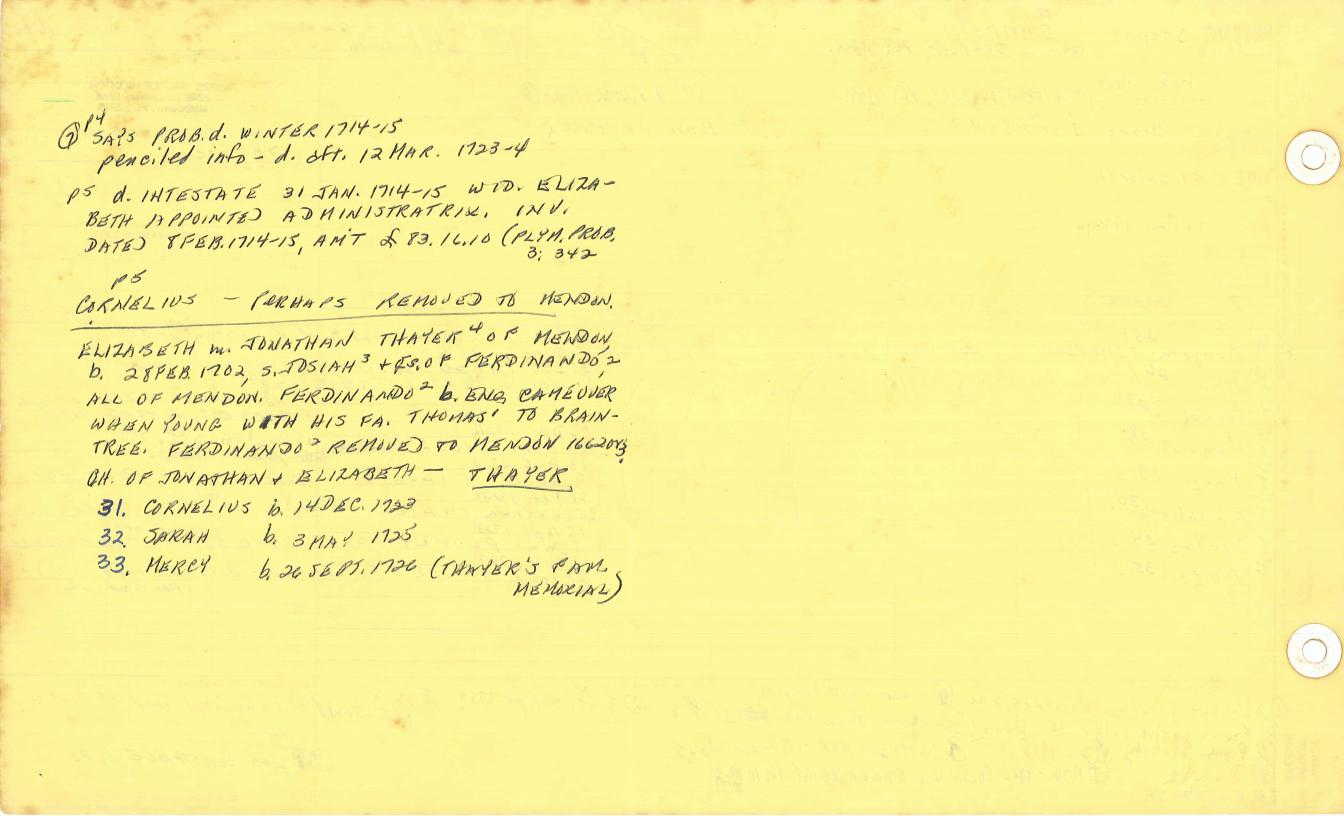 ⑦ P4 SAYS PROB. d. WINTER 1714-15
penciled info - d. aft. 12 MAR. 1723-4
p5 d. INTESTATE 31 JAN. 1714-15 WID. ELIZA-
BETH APPOINTED ADMINISTRATRIX. INV.
DATED 8 FEB. 1714-15, AM'T £ 83.16.10 (PLYM. PROB.
3; 342
p5
CORNELIUS - PERHAPS REMOVED TO MENDON.
ELIZABETH m. JONATHAN THAYER⁴ OF MENDON
b. 28 FEB. 1702, s. JOSIAH³ + gs. OF FERDINANDO²,
ALL OF MENDON. FERDINANDO² b. ENG. CAME OVER
WHEN YOUNG WITH HIS FA. THOMAS¹ TO BRAIN-
TREE. FERDINANDO² REMOVED TO MENDON 1662 or 3.
CH. OF JONATHAN + ELIZABETH - THAYER
31. CORNELIUS b. 14 DEC. 1723
32. SARAH b. 3 MAY 1725
33. MERCY b. 26 SEPT. 1726 (THAYER'S FAM.
MEMORIAL)